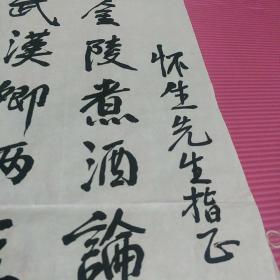 怀生先生指正
金陵煮酒論
武漢卿两